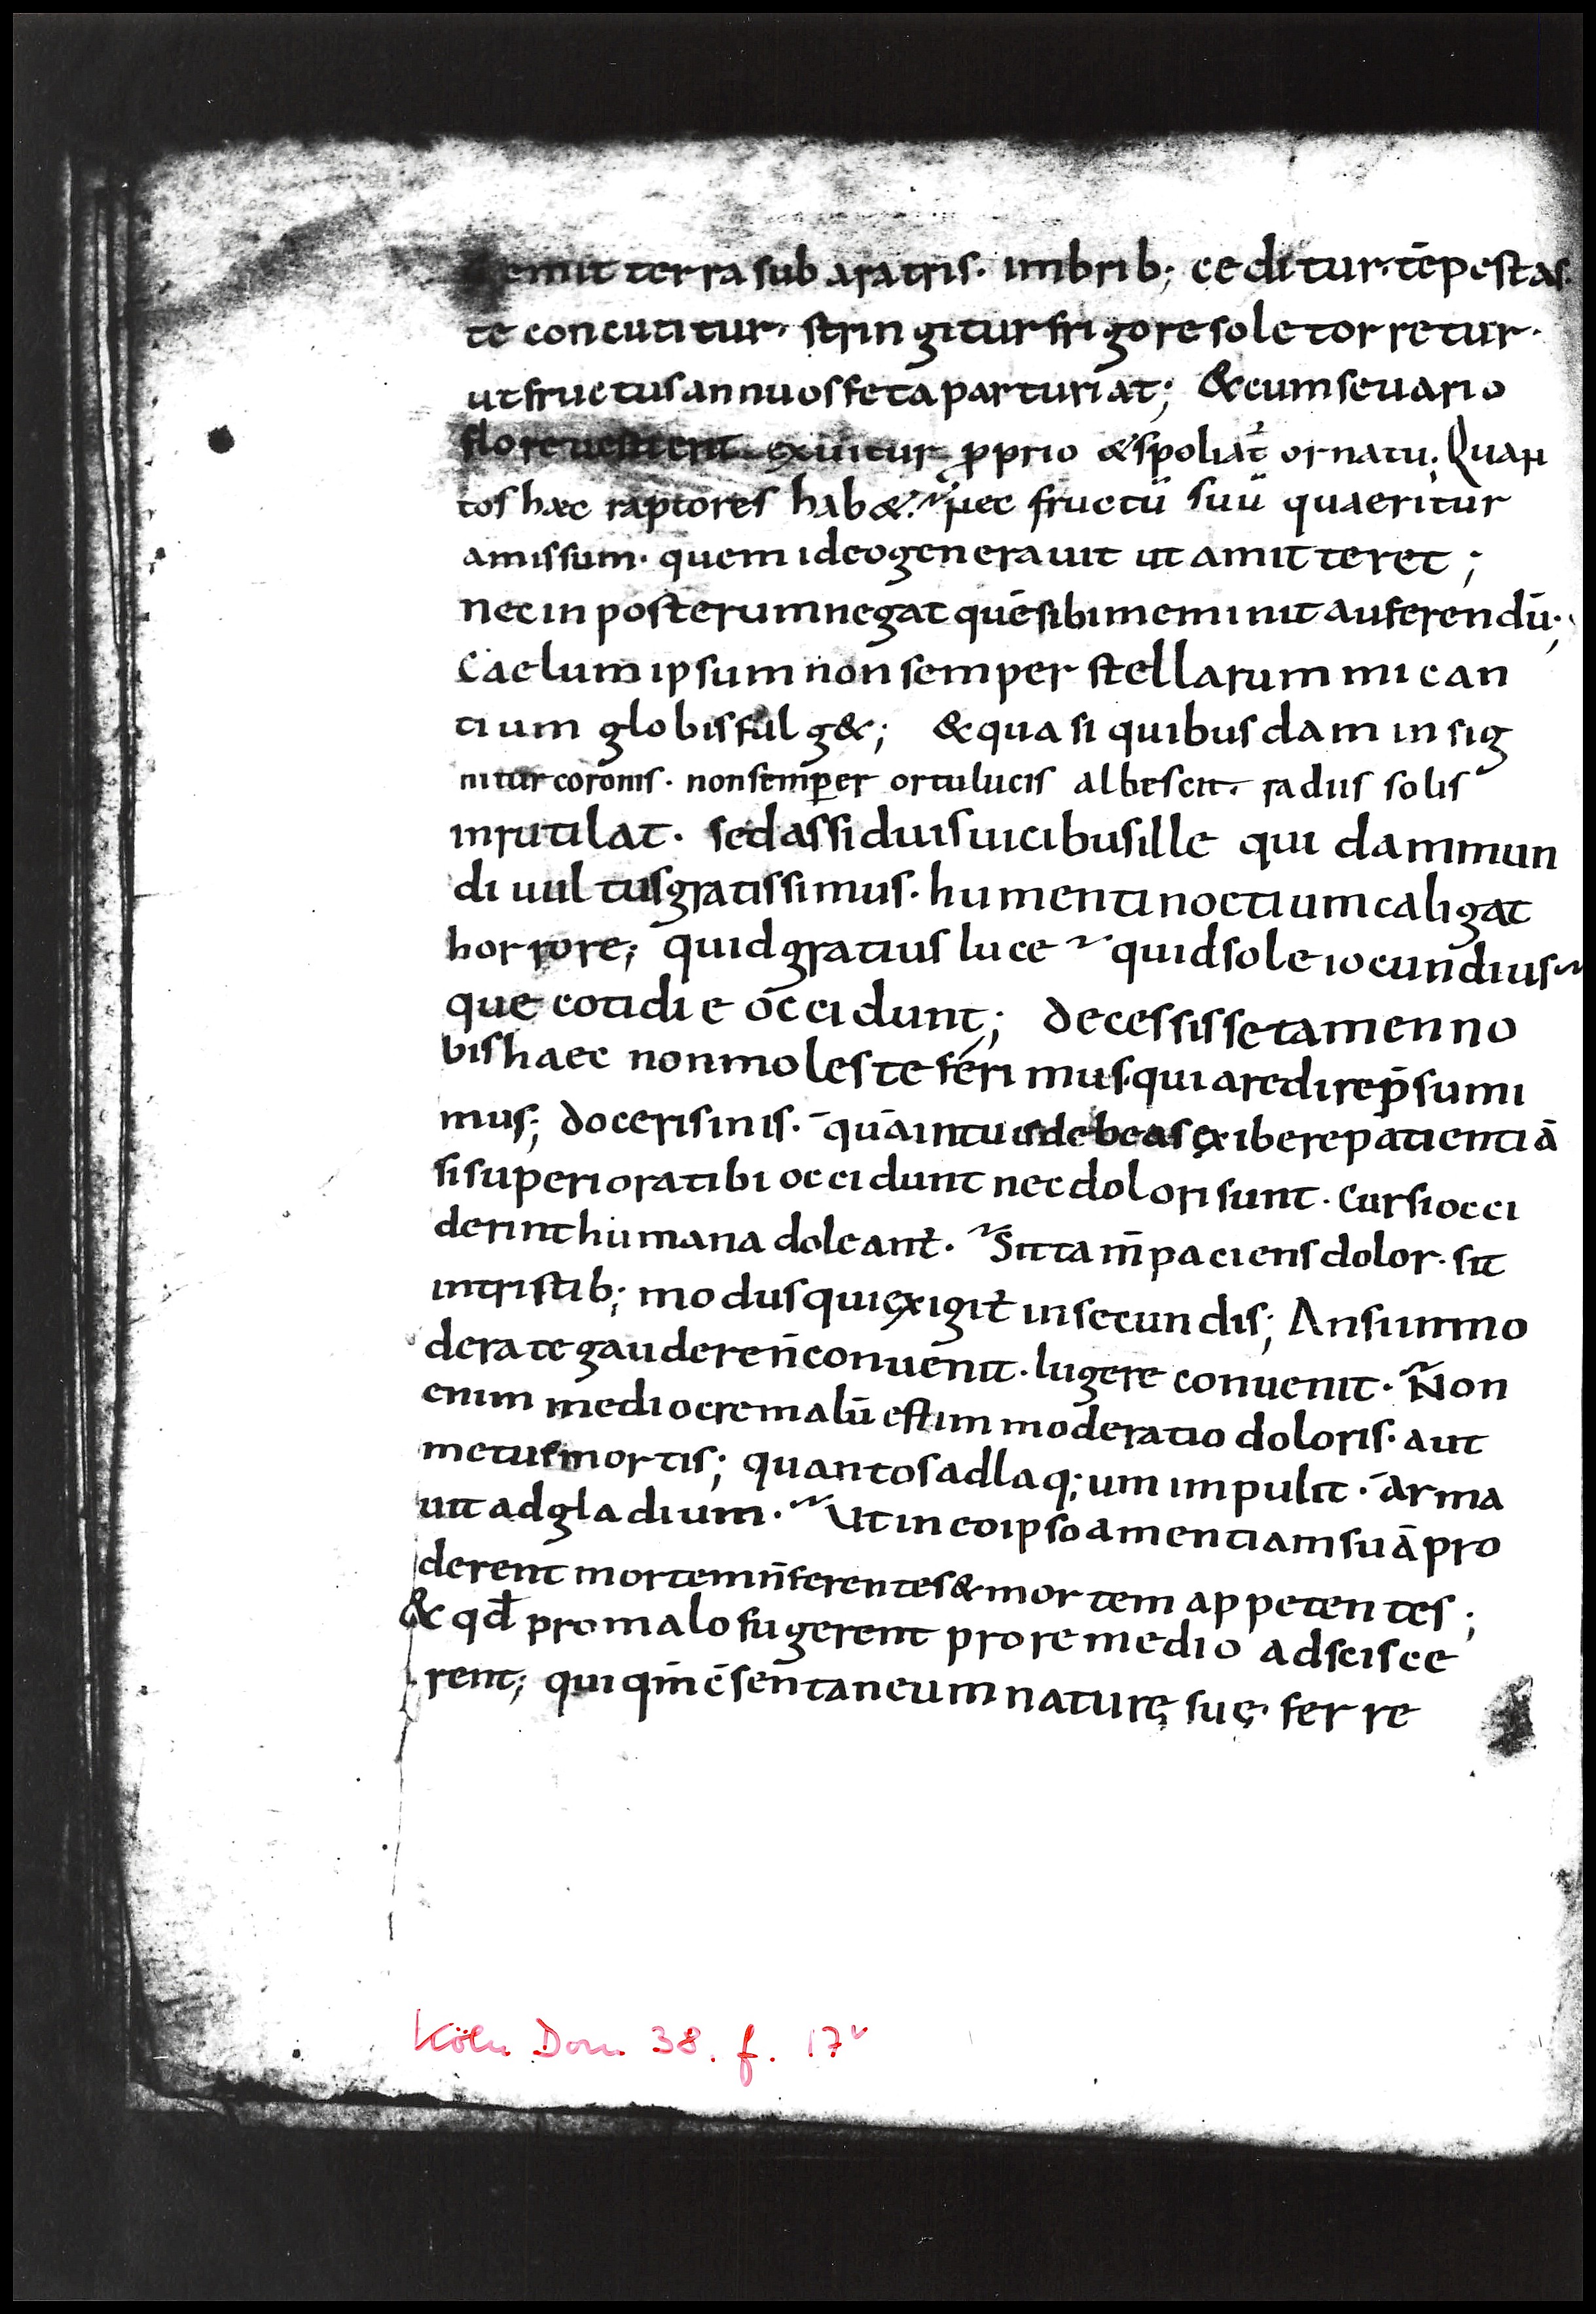 gemit terra sub aratris· imbrib; ceditur· tēpestas·
te concutitur, stringitur frigore sole torretur·
ut fructus annuos feta parturiat; & cum se uario
flore uestierit exuitur pprio & spoliat ornatu; Quan
tos haec raptores hab&· nec fructū suū quaeritur
amissum· quem ideo generauit ut amitteret;
nec in posterum negat quē sibi meminit auferendū;
Caelum ipsum non semper stellarum mican
tium globis fulg&; & quasi quibusdam insig
nitur coronis· non semper ortu lucis albescit, radiis solis
inrutilat· sed assiduis uicibus ille quidam mun
di uultus gratissimus· humenti noctium caligat
horrore; quid gratius luce quid sole iocundius
que cotidie occidunt; decessisse tamen no
bis haec non moleste ferimus· quia redire p̄sumi
mus; doceris in is· quā in tuis debeas exibere patientiā
si superiora tibi occidunt nec dolori sunt· Cur si occi
derint humana doleant̄· Sit tam̄ paciens dolor· sit
in tristib; modus qui exigit̄ in secundis; An si inmo
derate gaudere n̄ conuenit· lugere conuenit· Non
enim mediocre malū est inmoderatio doloris· aut
metus mortis; quantos ad laq;um impulit· arma
uit ad gladium· Ut in eo ipso amentiam suā pro
derent mortem n̄ ferentes & mortem appetentes;
& qd̄ pro malo fugerent pro remedio adscisce
rent; qui qm̄ c̄sentaneum naturę suę· ferre
Köln Dom 38. f. 17v